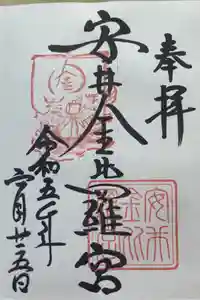 奉拝
安井金比羅宮
令和五年
六月廿五日
安井金比羅宮